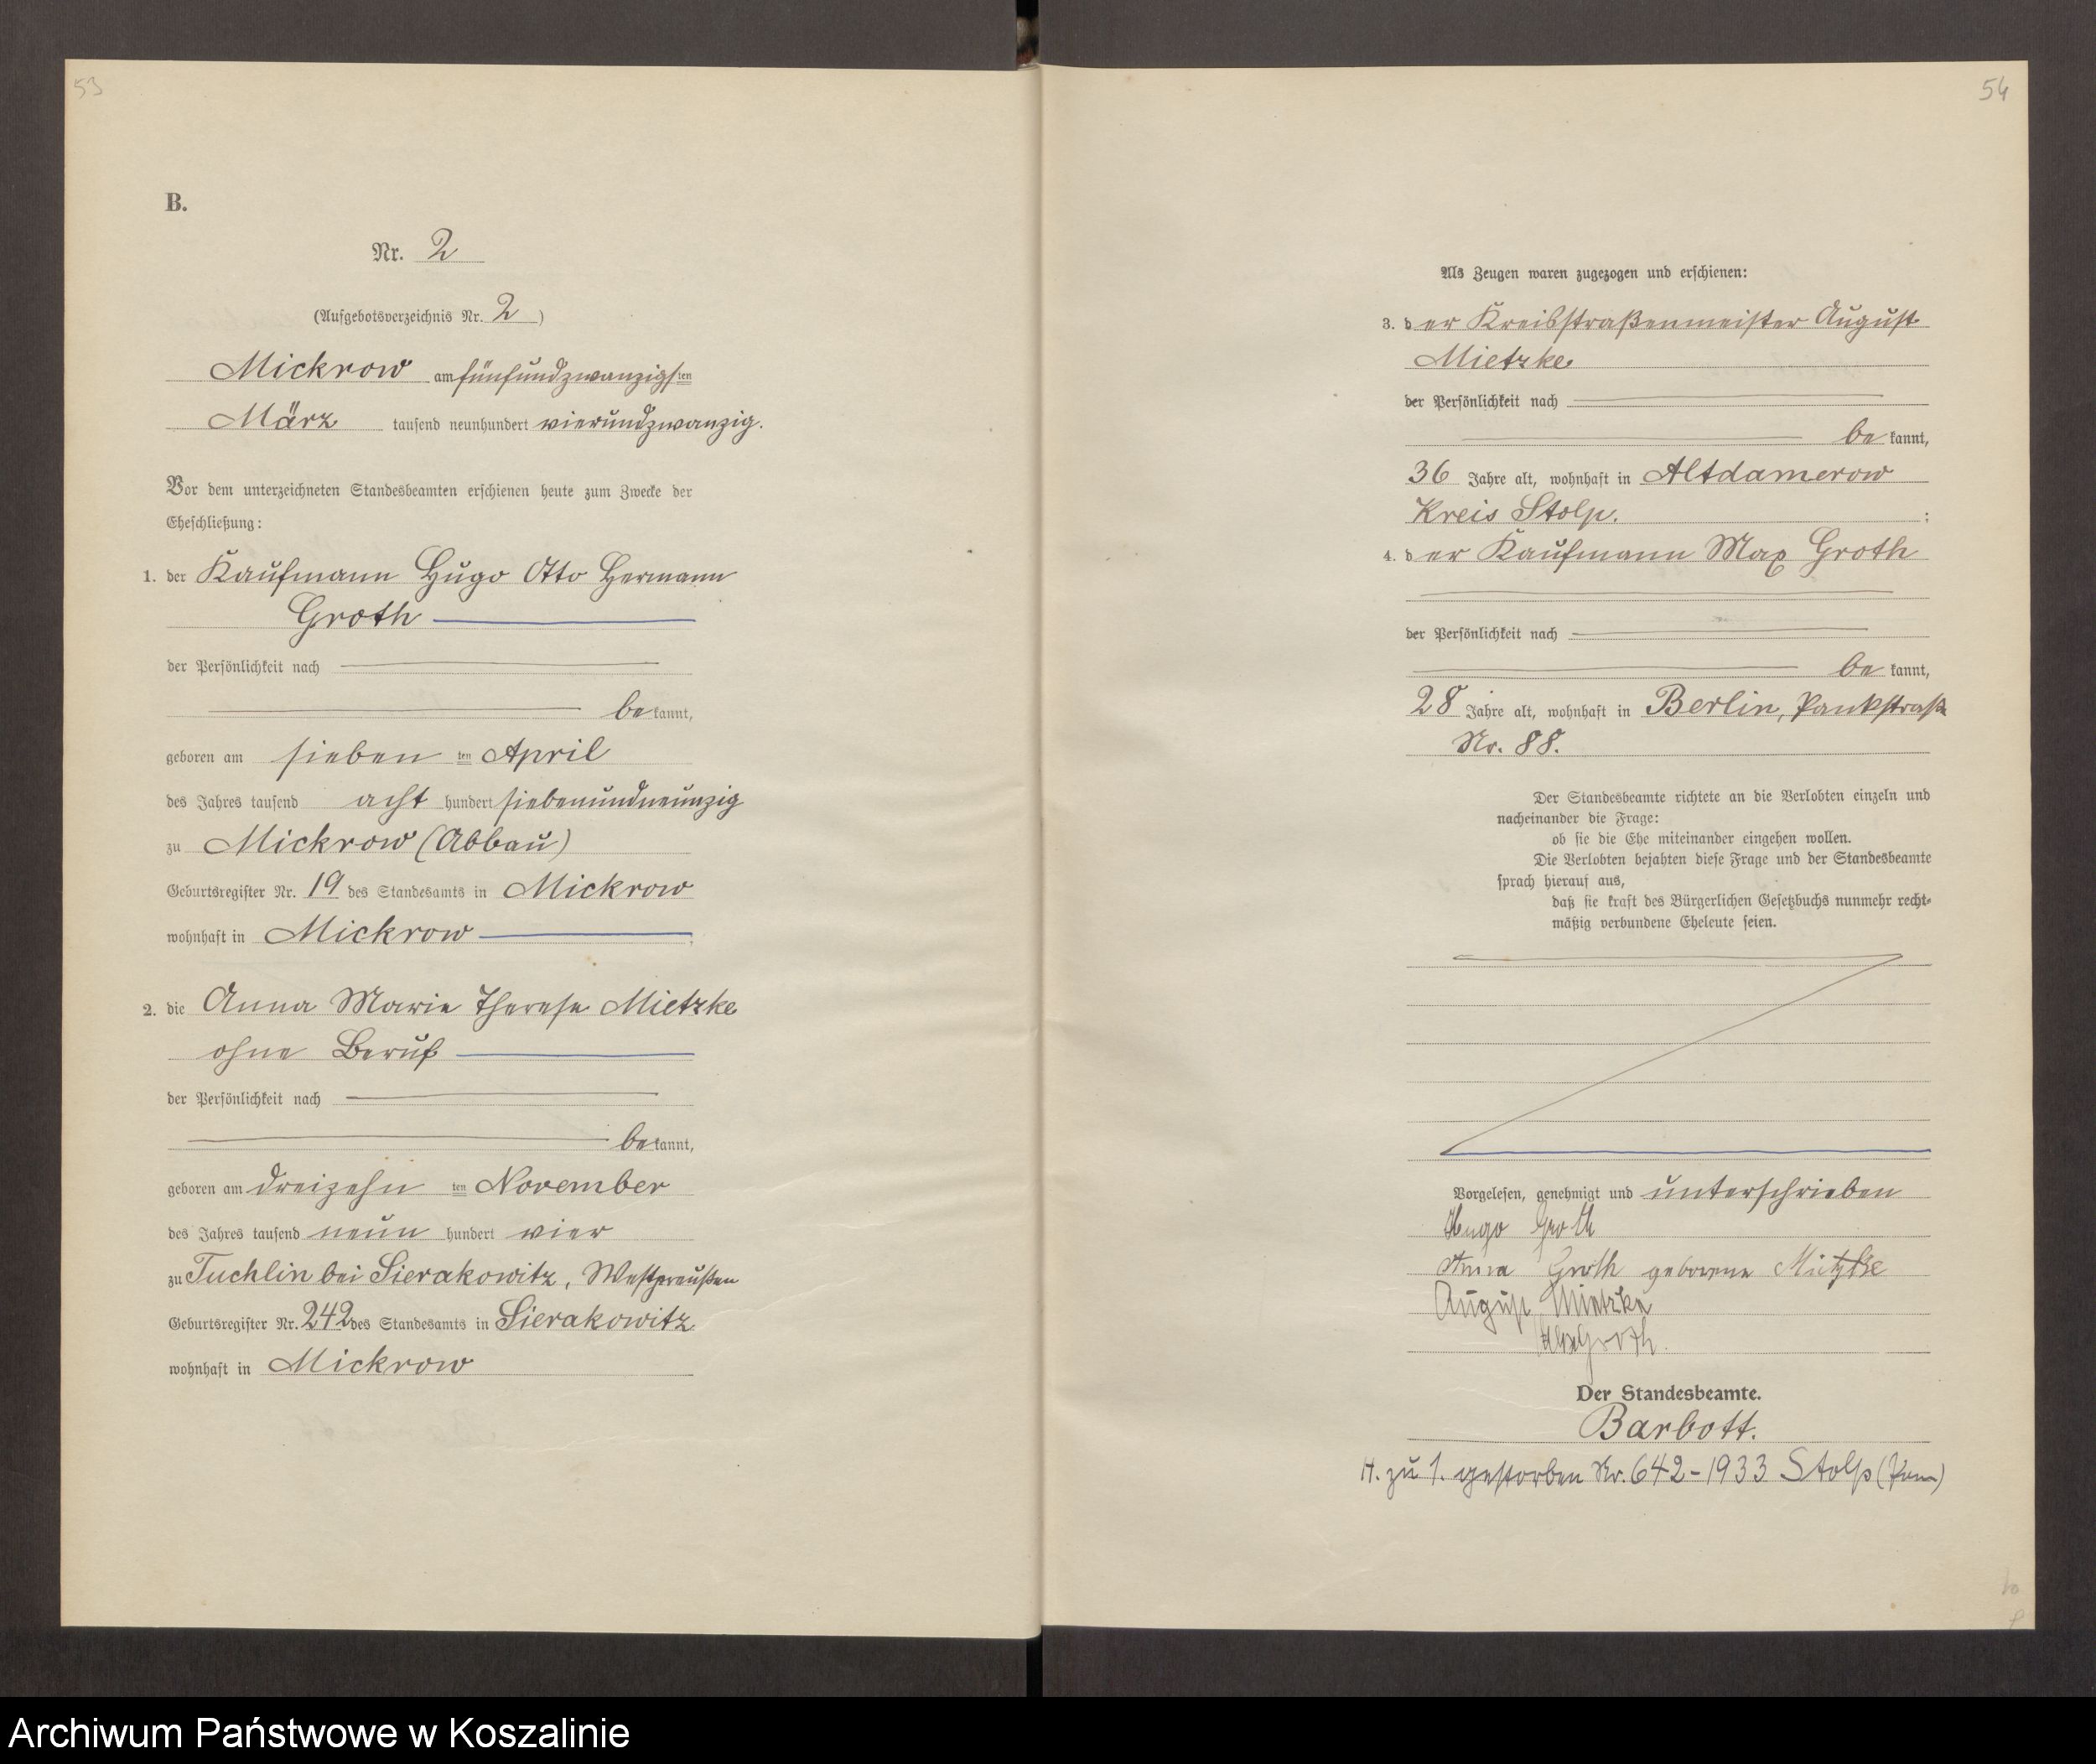 53
B.
Nr. 2
(Aufgebotsverzeichnis Nr. 2)
Mickrow am fünfundzwanzigsten
März tausend neunhundert vierundzwanzig.
Vor dem unterzeichneten Standesbeamten erschienen heute zum Zwecke der
Eheschließung:
1. der Kaufmann Hugo Otto Hermann
Groth
der Persönlichkeit nach
bekannt,
geboren am sieben ten April
des Jahres tausend acht hundert siebenundneunzig
zu Mickrow (Abbau)
Geburtsregister Nr. 19 des Standesamts in Mickrow
wohnhaft in Mickrow
2. die Anna Marie Therese Mietzke
ohne Beruf
der Persönlichkeit nach
bekannt,
geboren am dreizehn ten November
des Jahres tausend neun hundert vier
zu Tuchlin bei Sierakowitz, Westpreußen
Geburtsregister Nr. 242 des Standesamts in Sierakowitz
wohnhaft in Mickrow
54
Als Zeugen waren zugezogen und erschienen:
3. der Kreisstraßenmeister August
Mietzke
der Persönlichkeit nach
bekannt,
36 Jahre alt, wohnhaft in Altdamerow
Kreis Stolp. ;
4. der Kaufmann Max Groth
der Persönlichkeit nach
bekannt,
28 Jahre alt, wohnhaft in Berlin, Pankstraße
Nr. 88.
Der Standesbeamte richtete an die Verlobten einzeln und
nacheinander die Frage:
ob sie die Ehe miteinander eingehen wollen.
Die Verlobten bejahten diese Frage und der Standesbeamte
sprach hierauf aus,
daß sie kraft des Bürgerlichen Gesetzbuchs nunmehr recht-
mäßig verbundene Eheleute seien.
Vorgelesen, genehmigt und unterschrieben
Hugo Groth
Anna Groth geborene Mietzke
August Mietzke
Max Groth.
Der Standesbeamte.
Barbott.
H. zu 1. gestorben Nr. 642-1933 Stolp (Pom)
Archiwum Państwowe w Koszalinie